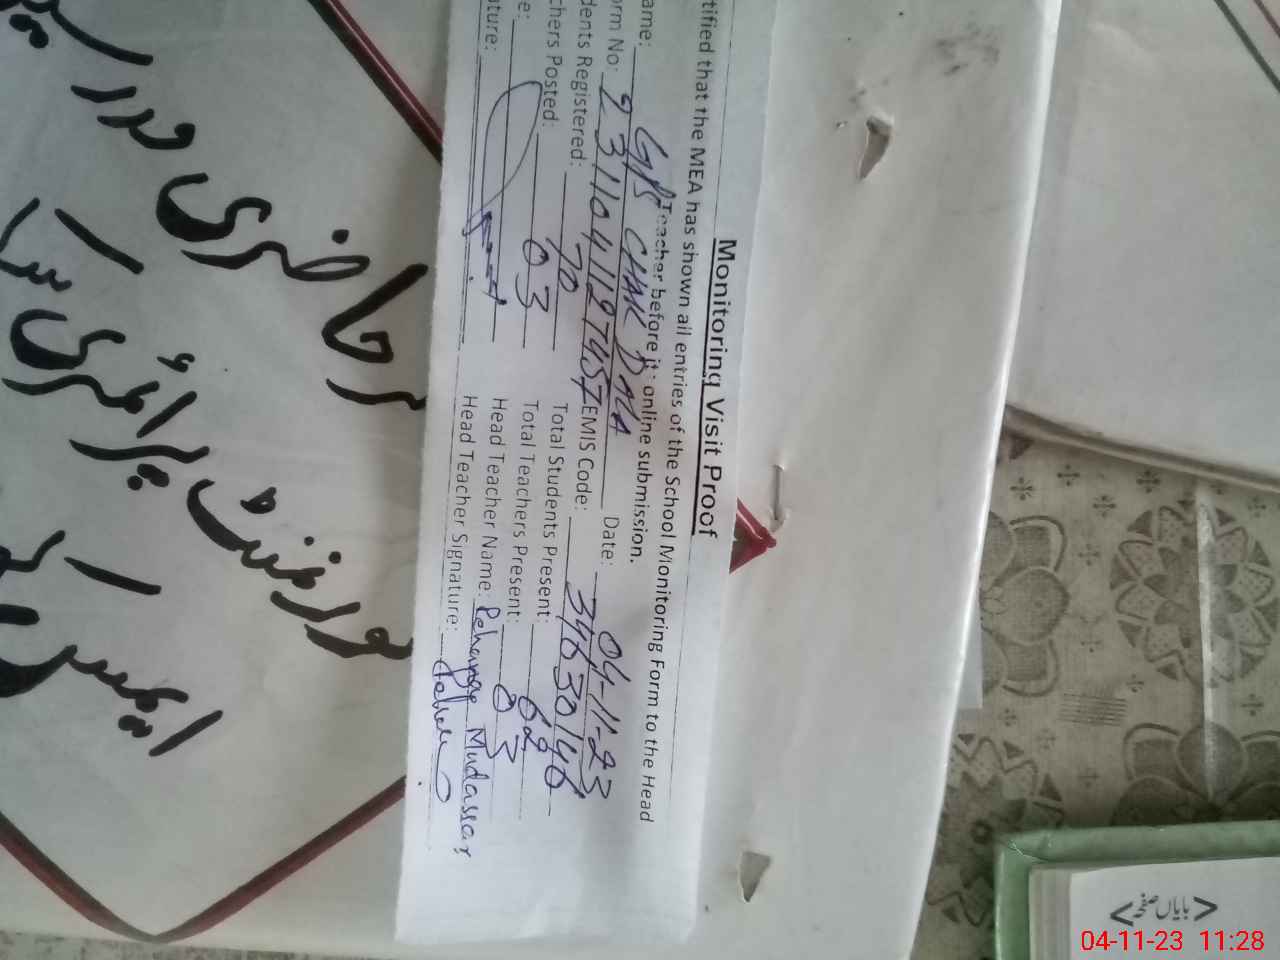 Monitoring Visit Proof
tified that the MEA has shown all entries of the School Monitoring Form to the Head
Teacher before it's online submission.
ame: GPS CHAK DALA Date: 04-11-23
orm No: 231104112745 EMIS Code: 34630146
dents Registered: 70 Total Students Present: 62
chers Posted: 03 Total Teachers Present: 03
e: Head Teacher Name: Mudassar
ature: Head Teacher Signature:
حاضری مدرسین
گورنمنٹ پرائمری
ایمس
< بایاں صفحہ >
04-11-23 11:28